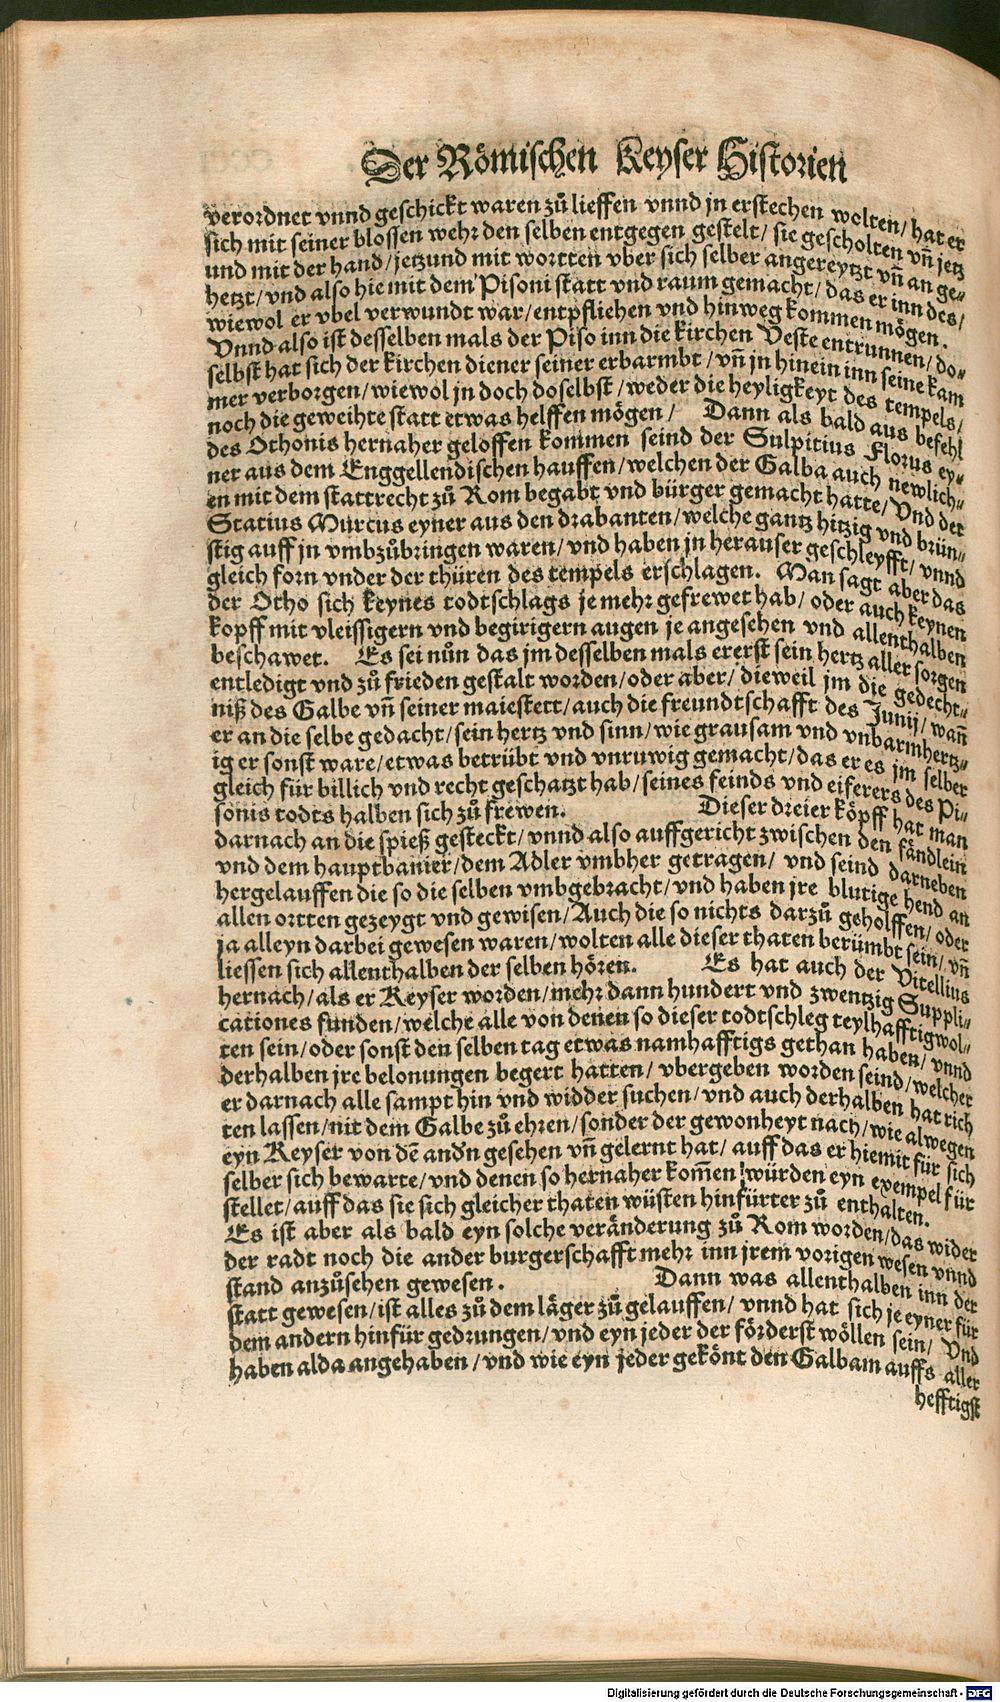 Der Römischen Keyser Historien
verordnet vnnd geschickt waren zů lieffen vnnd jn erstechen wolten/ hat er
sich mit seiner blossen wehr den selben entgegen gestelt/ sie gescholten vñ jetz
und mit der hand/ jetzund mit wortten vber sich selber angereytzt vñ an ge-
hetzt/ vnd also hie mit dem Pisoni statt vnd raum gemacht/ das er inn des/
wiewol er vbel verwundt war/ entpfliehen vnd hinweg kommen mögen.
Vnnd also ist desselben mals der Piso inn die kirchen Veste entrunnen/ do-
selbst hat sich der kirchen diener seiner erbarmbt/ vñ jn hinein inn seine kam
mer verborgen/ wiewol jn doch doselbst/ weder die heyligkeyt des tempels/
noch die geweihte statt etwas helffen mögen/ Dann als bald aus befehl
des Othonis hernaher geloffen kommen seind der Sulpitius Florus ey-
ner aus dem Enggellendischen hauffen/ welchen der Galba auch newlich-
en mit dem stattrecht zů Rom begabt vnd bürger gemacht hatte/ Vnd der
Statius Murcus eyner aus den drabanten/ welche gantz hitzig vnd brün-
stig auff jn vmbzůbringen waren/ vnd haben jn herauser geschleyfft/ vnnd
gleich forn vnder der thüren des tempels erschlagen. Man sagt aber das
der Otho sich keynes todtschlags je mehr gefrewet hab/ oder auch keynen
kopff mit vleissigern vnd begirigern augen je angesehen vnd allenthalben
beschawet. Es sei nůn das jm desselben mals ererst sein hertz aller sorgen
entledigt vnd zů frieden gestalt worden/ oder aber/ dieweil jm die gedecht-
niß des Galbe vñ seiner maiestett/ auch die freundtschafft des Junij/ wañ
er an die selbe gedacht/ sein hertz vnd sinn/ wie grausam vnd vnbarmhertz-
ig er sonst ware/ etwas betrübt vnd vnruwig gemacht/ das er es jm selber
gleich für billich vnd recht geschatzt hab/ seines feinds vnd eiferers des Pi-
sonis todts halben sich zů frewen. Dieser dreier köpff hat man
darnach an die spieß gesteckt/ vnnd also auffgericht zwischen den fändlein
vnd dem hauptbanier/ dem Adler vmbher getragen/ vnd seind darneben
hergelauffen die so die selben vmbgebracht/ vnd haben jre blutige hend an
allen ortten gezeygt vnd gewisen/ Auch die so nichts darzů geholffen/ oder
ja alleyn darbei gewesen waren/ wolten alle dieser thaten berümbt sein/ vñ
liessen sich allenthalben der selben hören. Es hat auch der Vitellius
hernach/ als er Keyser worden/ mehr dann hundert vnd zwentzig Suppli-
cationes funden/ welche alle von denen so dieser todtschleg teylhafftig wol-
ten sein/ oder sonst den selben tag etwas namhafftigs gethan haben/ vnnd
derhalben jre belonungen begert hatten/ vbergeben worden seind/ welcher
er darnach alle sampt hin vnd widder suchen/ vnd auch derhalben hat rich
ten lassen/ nit dem Galbe zů ehren/ sonder der gewonheyt nach/ wie alwegen
eyn Keyser von dē andn̄ gesehen vñ gelernt hat/ auff das er hiemit für sich
selber sich bewarte/ vnd denen so hernaher kom̄en würden eyn exempel für
stellet/ auff das sie sich gleicher thaten wüsten hinfürter zů enthalten.
Es ist aber als bald eyn solche veränderung zů Rom worden/ das wider
der radt noch die ander burgerschafft mehr inn jrem vorigen wesen vnnd
stand anzůsehen gewesen. Dann was allenthalben inn der
statt gewesen/ ist alles zů dem läger zů gelauffen/ vnnd hat sich je eyner für
dem andern hinfür gedrungen/ vnd eyn jeder der förderst wöllen sein/ Vnd
haben alda angehaben/ vnd wie eyn jeder gekönt den Galbam auffs aller
hefftigst
Digitalisierung gefördert durch die Deutsche Forschungsgemeinschaft - DFG